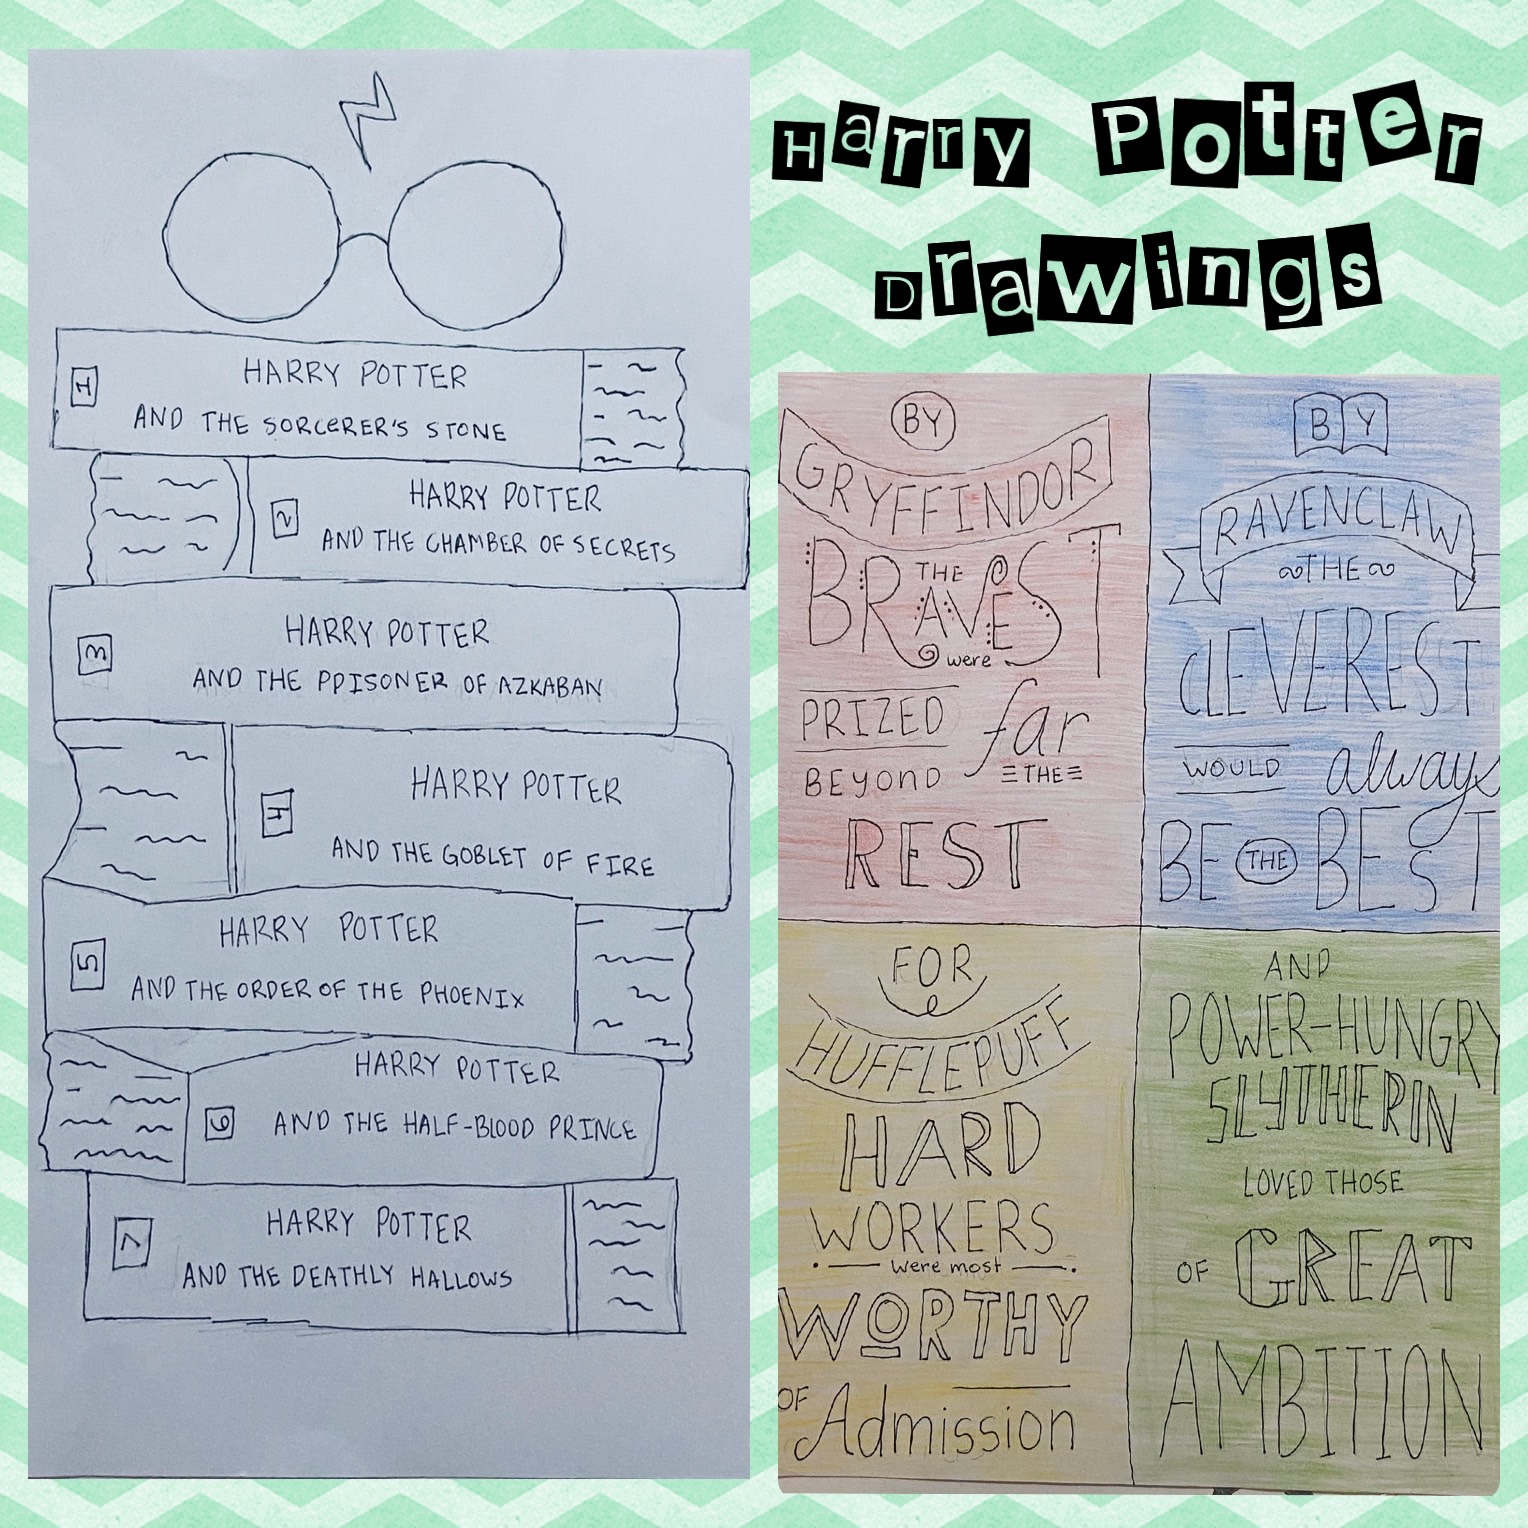 Harry Potter
Drawings
1
HARRY POTTER
AND THE SORCERER'S STONE
2
HARRY POTTER
AND THE CHAMBER OF SECRETS
3
HARRY POTTER
AND THE PPISONER OF AZKABAN
4
HARRY POTTER
AND THE GOBLET OF FIRE
5
HARRY POTTER
AND THE ORDER OF THE PHOENIX
6
HARRY POTTER
AND THE HALF-BLOOD PRINCE
7
HARRY POTTER
AND THE DEATHLY HALLOWS
BY
GRYFFINDOR
THE
BRAVEST
were
PRIZED far
BEYOND THE
REST
BY
RAVENCLAW
THE
CLEVEREST
WOULD always
BE THE BEST
FOR
HUFFLEPUFF
HARD
WORKERS
were most
WORTHY
OF Admission
AND
POWER-HUNGRY
SLYTHERIN
LOVED THOSE
OF GREAT
AMBITION